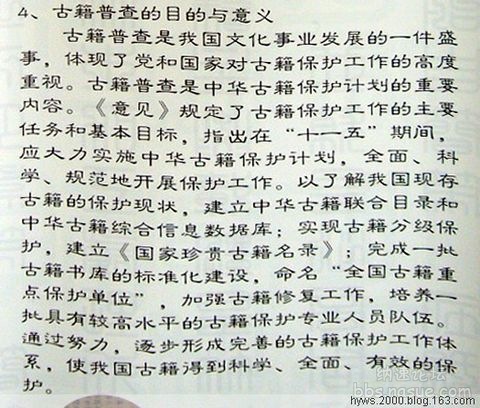 4、古籍普查的目的与意义
古籍普查是我国文化事业发展的一件盛
事，体现了党和国家对古籍保护工作的高度
重视。古籍普查是中华古籍保护计划的重要
内容。《意见》规定了古籍保护工作的主要
任务和基本目标，指出在“十一五”期间，
应大力实施中华古籍保护计划，全面、科
学、规范地开展保护工作。以了解我国现存
古籍的保护现状，建立中华古籍联合目录和
中华古籍综合信息数据库；实现古籍分级保
护，建立《国家珍贵古籍名录》；完成一批
古籍书库的标准化建设，命名“全国古籍重
点保护单位”，加强古籍修复工作，培养一
批具有较高水平的古籍保护专业人员队伍。
通过努力，逐步形成完善的古籍保护工作体
系，使我国古籍得到科学、全面、有效的保
护。
纳速论坛
bbs.nasue.com
hyws.2000.blog.163.com